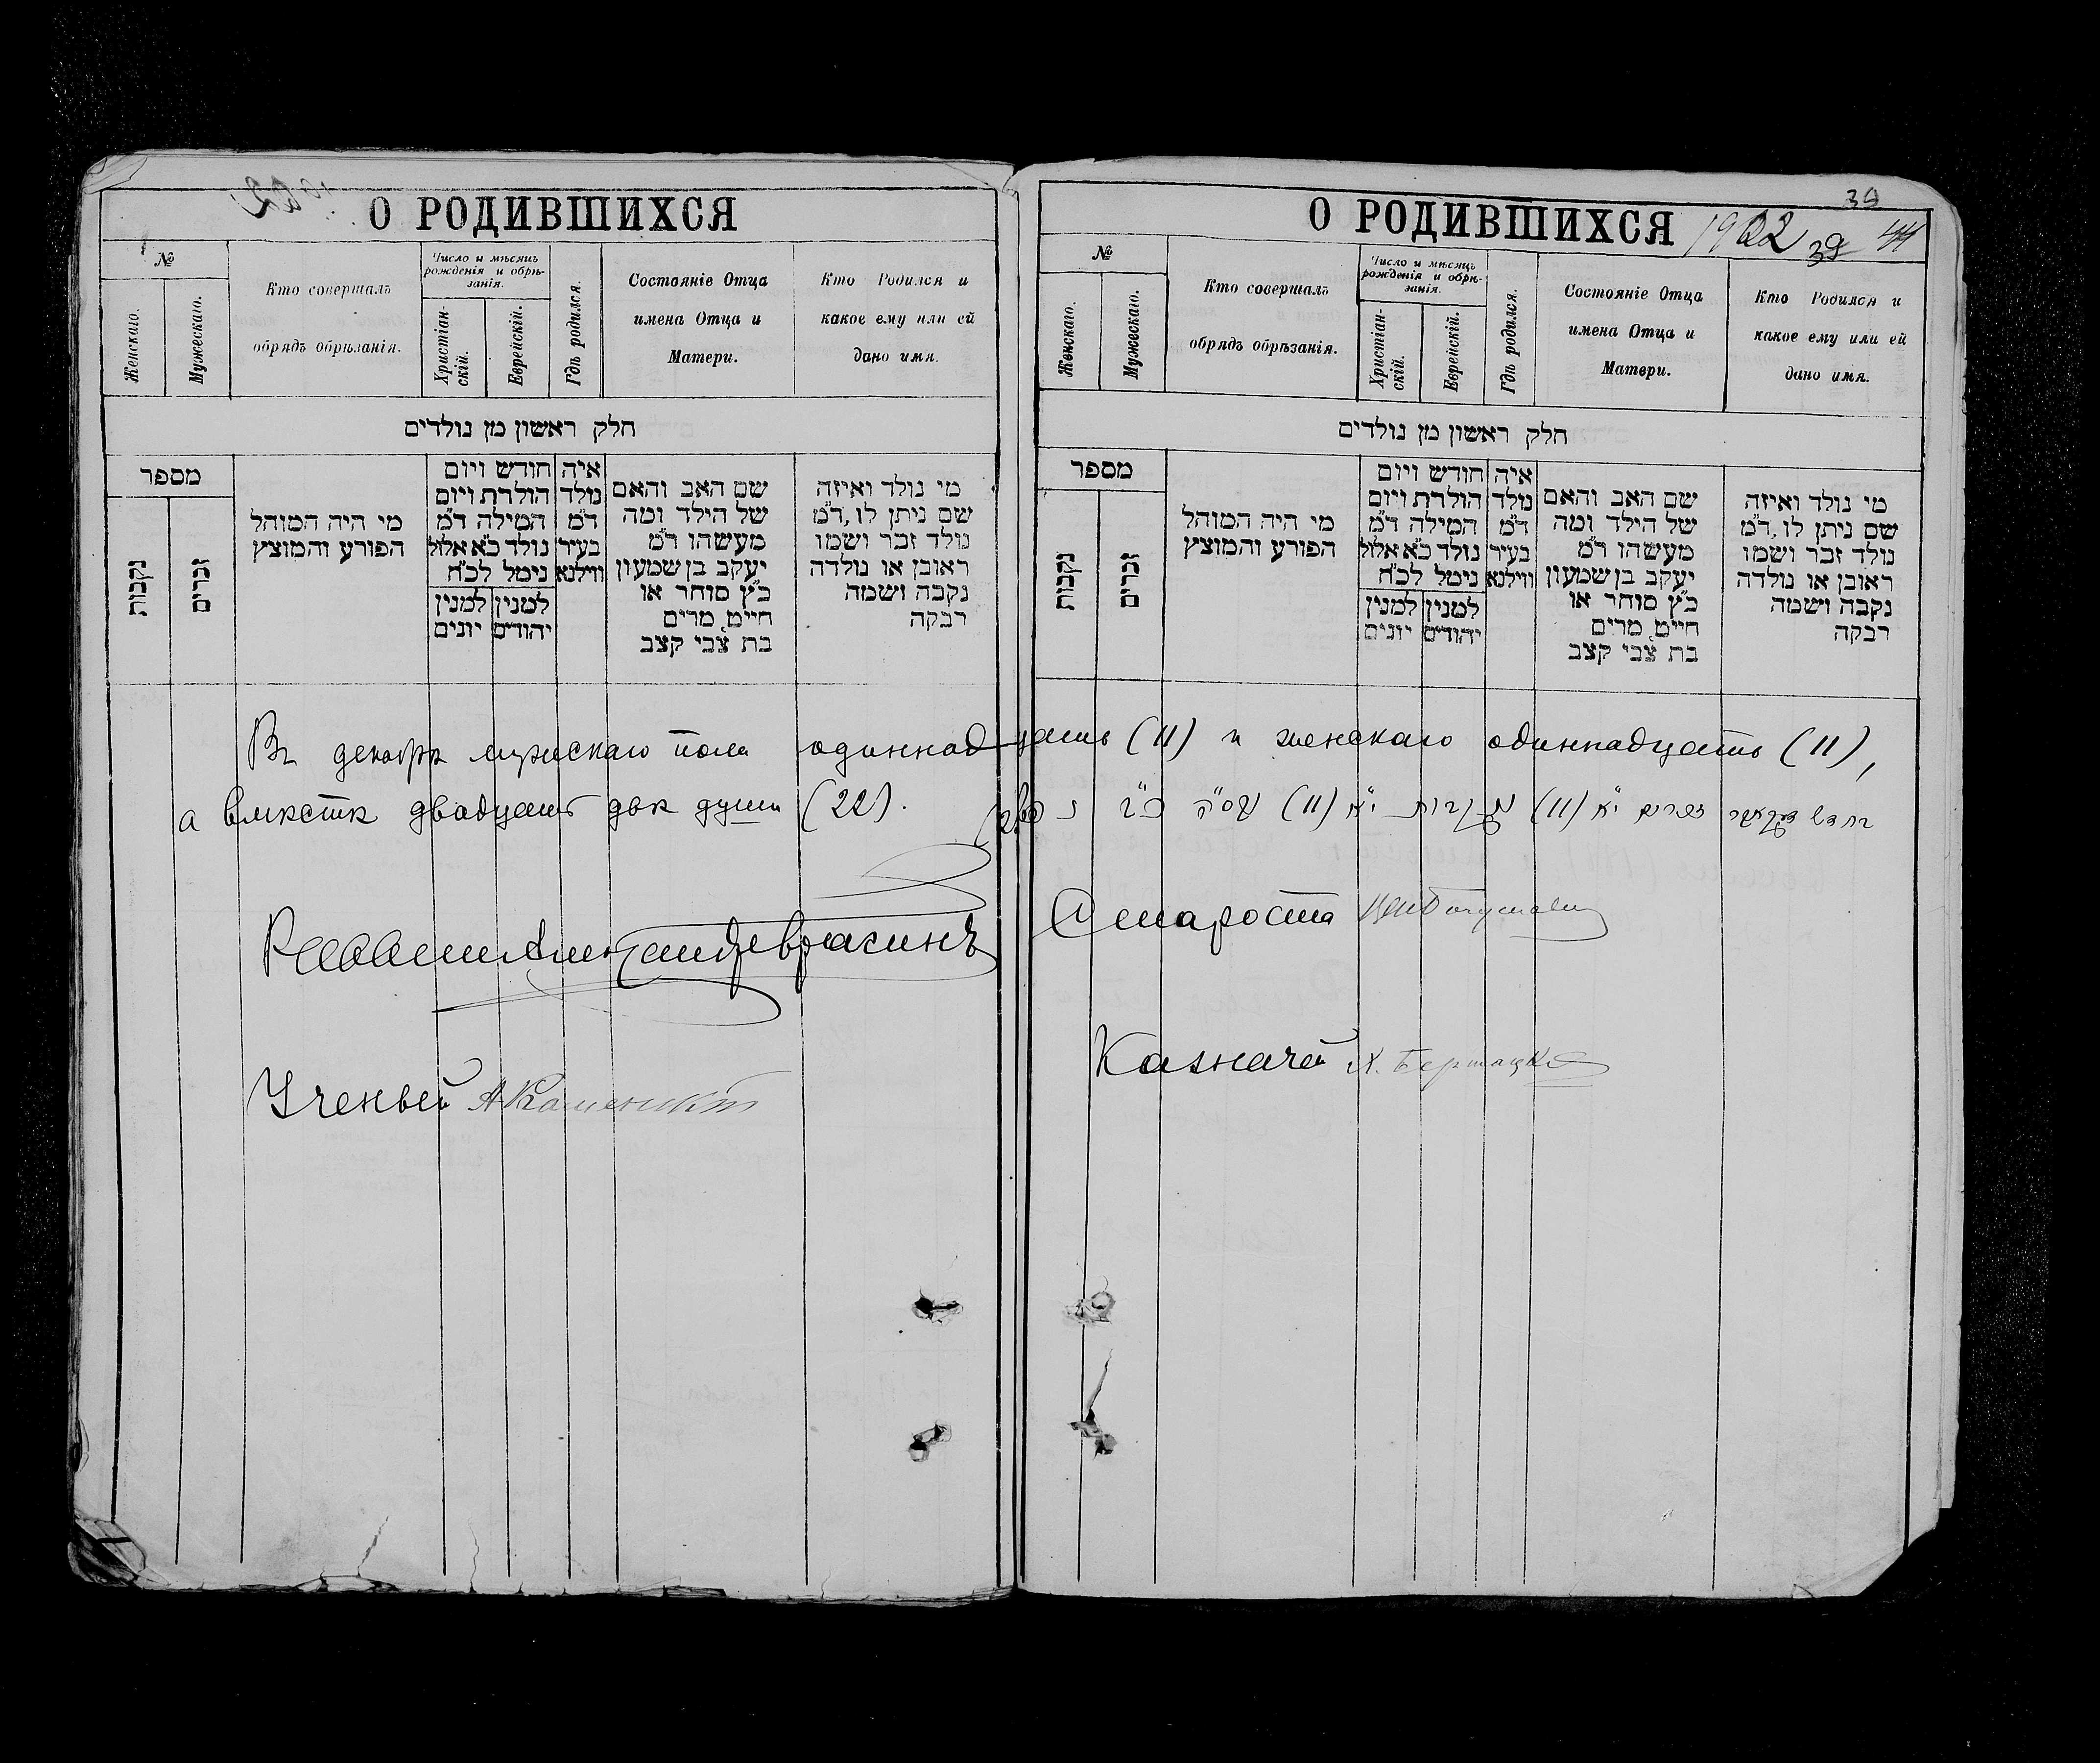 О РОДИВШИХСЯ
№
Женскаго.
Мужескаго.
Кто совершалъ
обрядъ обрѣзанія.
Число и мѣсяцъ
рожденія и обрѣ-
занія.
Христіан-
скій.
Еврейскій.
Гдѣ родился.
Состояніе Отца
имена Отца и
Матери.
Кто Родился и
какое ему или ей
дано имя.
חלק ראשון מן נולדים
מספר
נקבות
זכרים
מי היה המוהל
הפורע והמוצץ
חודש ויום
הולדת ויום
המילה ד״מ
נולד כ״א אלול
נימל לכ״ח
למנין
יהודים
למנין
יונים
איה
נולד
ד״מ
בעיר
ווילנא
שם האב והאם
של הילד ומה
מעשהו ד״מ
יעקב בן שמעון
כ״ץ סוחר או
חייט, מרים
בת צבי קצב
מי נולד ואיזה
שם ניתן לו, ד״מ
נולד זכר ושמו
ראובן או נולדה
נקבה ושמה
רבקה
О РОДИВШИХСЯ 1902
39
39 44
№
Женскаго.
Мужескаго.
Кто совершалъ
обрядъ обрѣзанія.
Число и мѣсяцъ
рожденія и обрѣ-
занія.
Христіан-
скій.
Еврейскій.
Гдѣ родился.
Состояніе Отца
имена Отца и
Матери.
Кто Родился и
какое ему или ей
дано имя.
חלק ראשון מן נולדים
מספר
נקבות
זכרים
מי היה המוהל
הפורע והמוצץ
חודש ויום
הולדת ויום
המילה ד״מ
נולד כ״א אלול
נימל לכ״ח
למנין
יהודים
למנין
יונים
איה
נולד
ד״מ
בעיר
ווילנא
שם האב והאם
של הילד ומה
מעשהו ד״מ
יעקב בן שמעון
כ״ץ סוחר או
חייט, מרים
בת צבי קצב
מי נולד ואיזה
שם ניתן לו, ד״מ
נולד זכר ושמו
ראובן או נולדה
נקבה ושמה
רבקה
Въ декабрѣ мужескаго пола одиннадцать (11) и женскаго одиннадцать (11),
а вмѣстѣ двадцать двѣ души (22).
חדש דעקאבר זכרים י״א (11) נקבות י״א (11) ס״ה כ״ב נפש
Раввинъ
Староста
Ученый А Каменецкій
Казначей